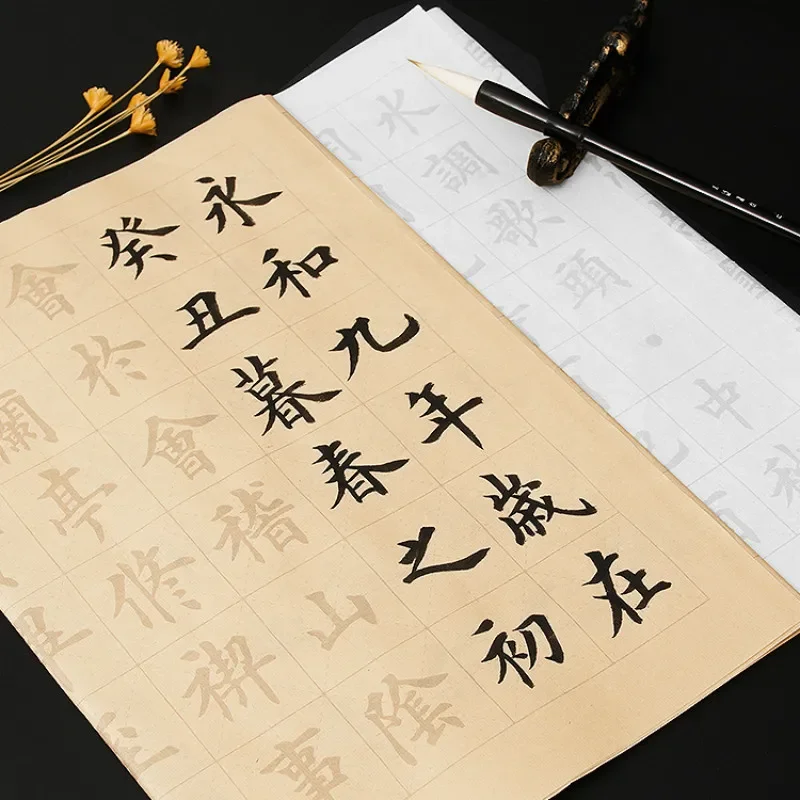 水調歌頭·中秋
永和九年歲在
癸丑暮春之初
會於會稽山陰
蘭亭修禊事
至